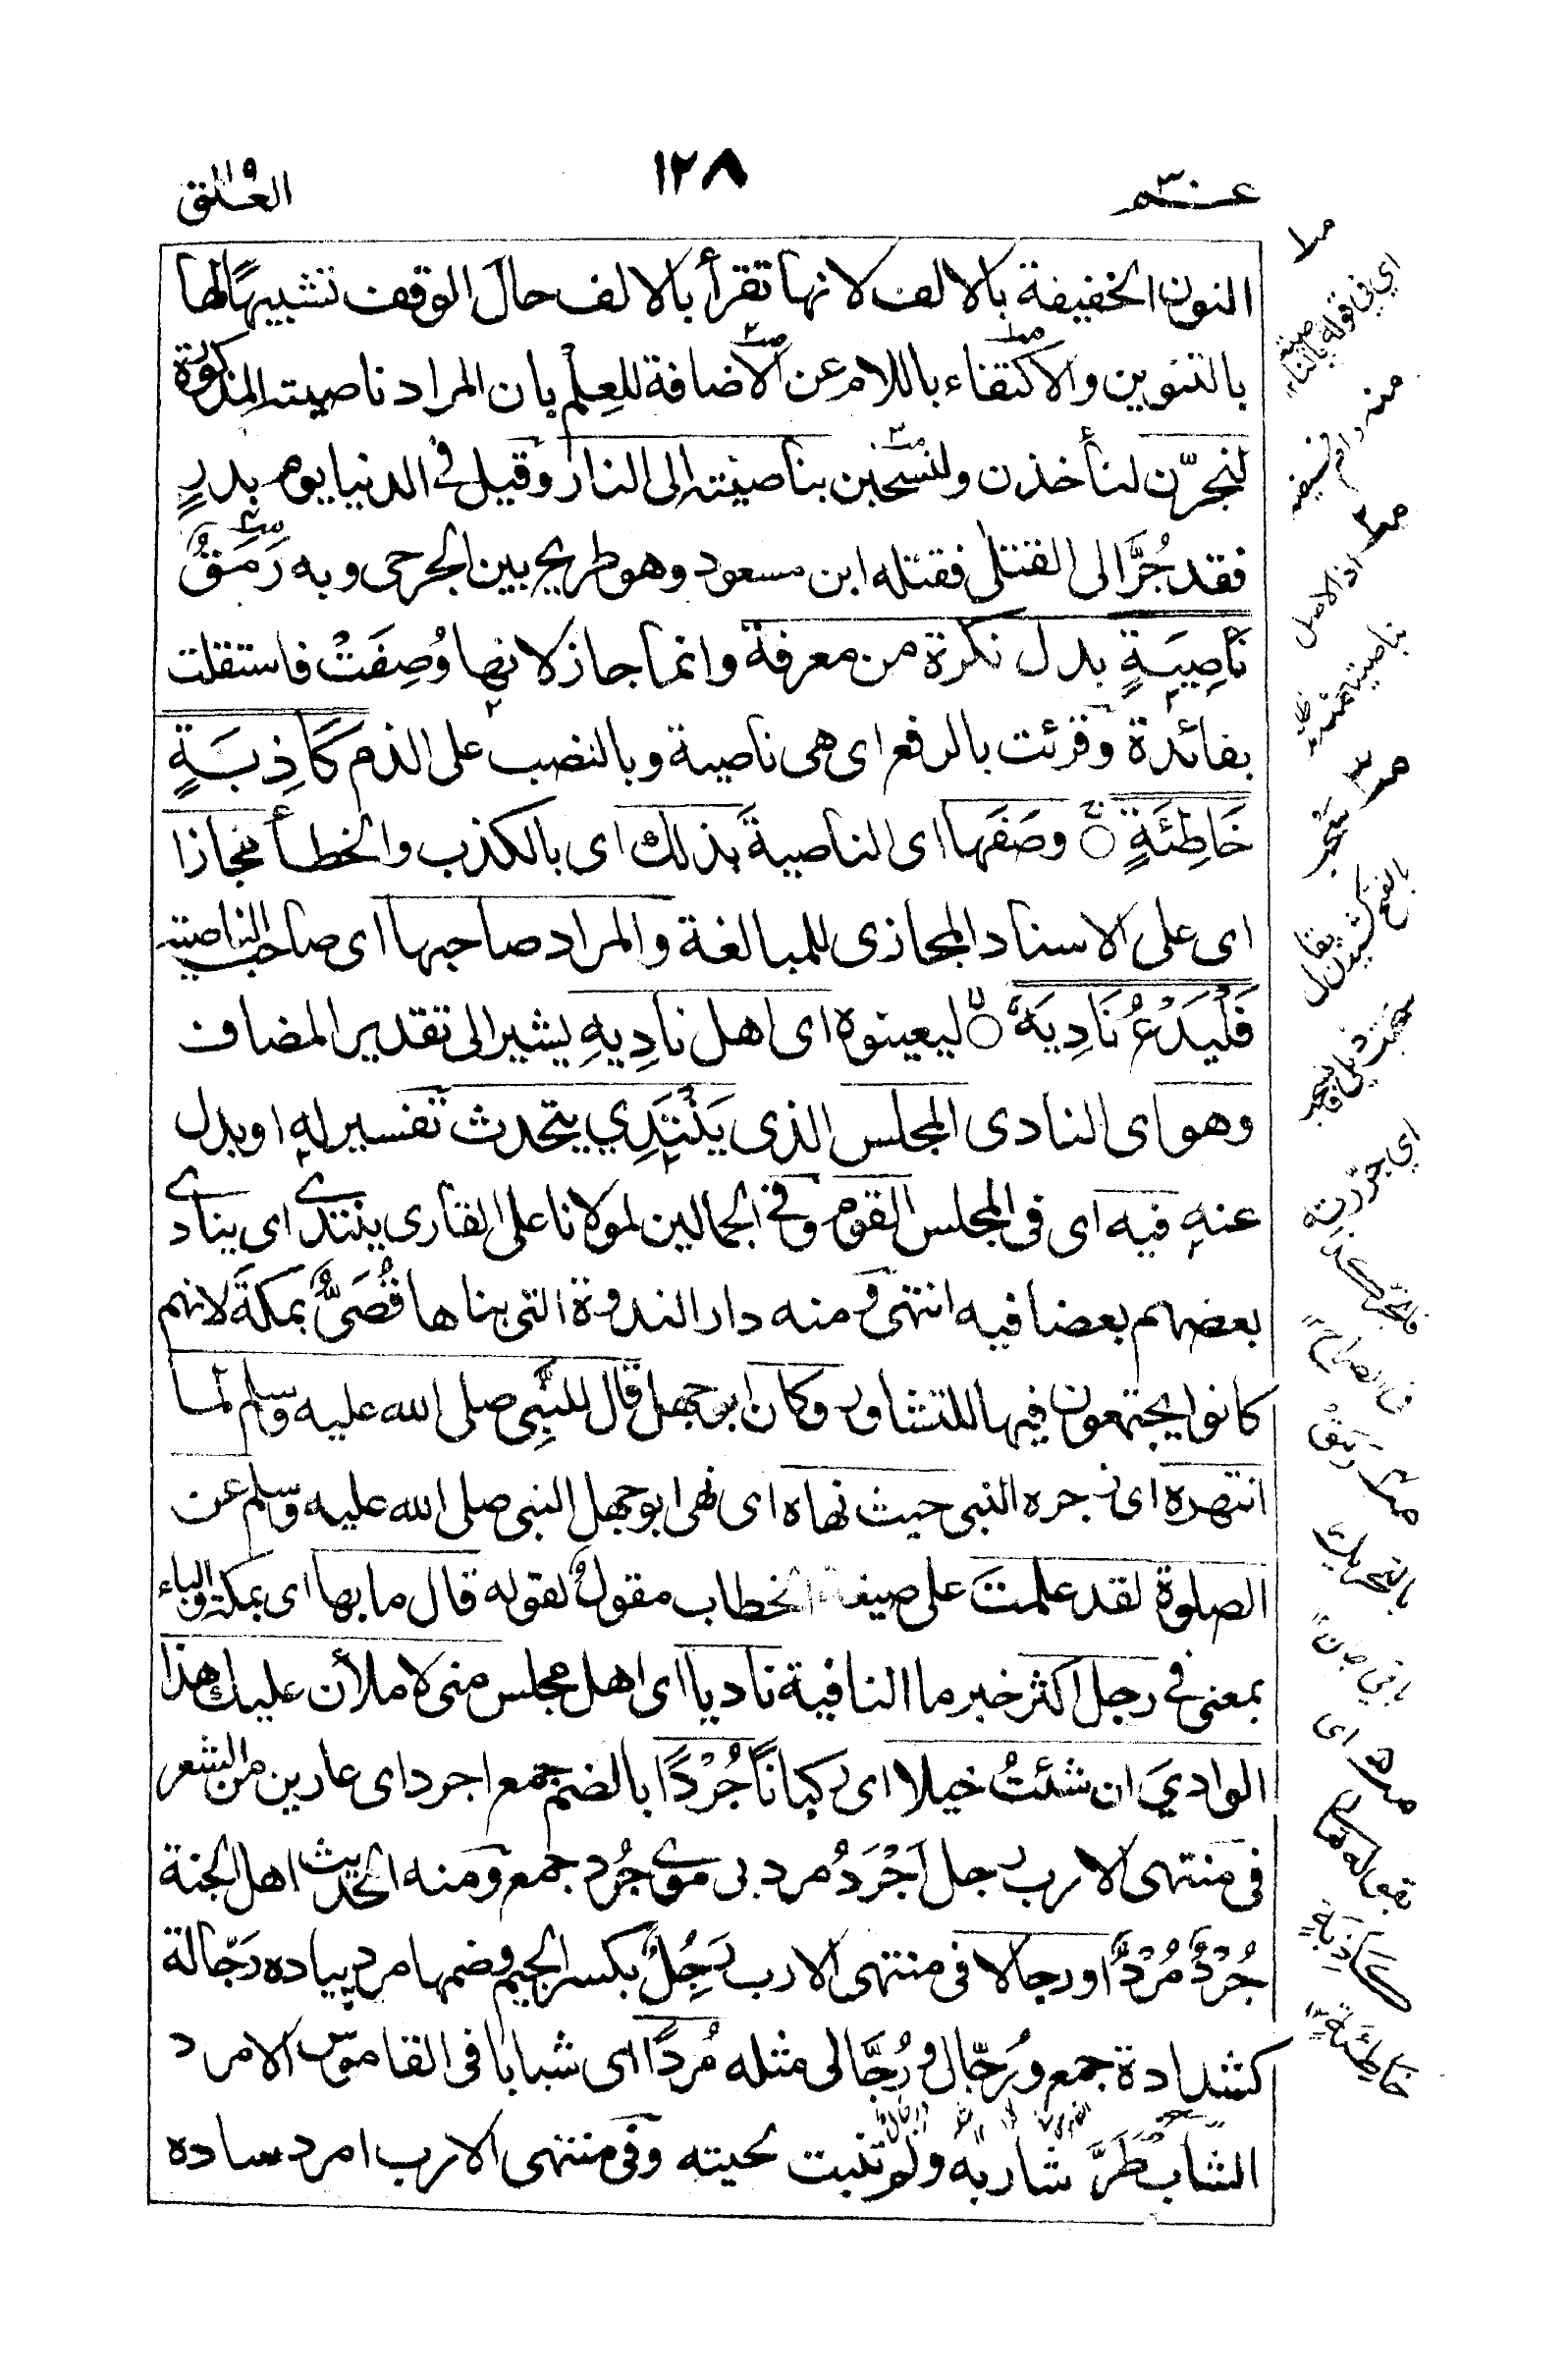 عم ٣٠
١٢٨
العلق
النون الخفيفة بالالف لانها تقرأ بالالف حال الوقف تشبيهًا لها
بالتنوين والاكتفاء باللام عن الاضافة للعِلْم بان المراد ناصيته المذكورة
لنجرّن لنأخذن ولنسحبن بناصيته الى النار وقيل فى الدنيا يوم بدرٍ
فقد جُرَّ الى القتلى فقتله ابن مسعود وهو طريح بين الجرحى وبه رَمَقٌ
نَاصِيَةٍ بدل نكرة من معرفة وانما جاز لانها وُصِفَتْ فاستقلت
بفائدة وقرئت بالرفع اى هى ناصية وبالنصب على الذم كَاذِبَةٍ
خَاطِئَةٍ وصَفَها اى الناصيةَ بذلك اى بالكذب والخطأ مجازا
اى على الاسناد المجازى للمبالغة والمراد صاحبها اى صاحب الناصية
فَلْيَدْعُ نَادِيَهٗ ليعينوه اى اهل نادِيهِ يشير الى تقدير المضاف
وهو اى النادى المجلس الذى يَنْتَدِي يتحدث تفسير له او بدل
عنه فيه اى فى المجلس القوم وفى الجمالين لمولانا على القارى ينتدى اى ينادى
بعضهم بعضا فيه انتهى ومنه دار الندوة التى بناها قُصَىٌّ بمكةَ لانهم
كانوا يجتمعون فيها للتشاور وكان ابوجهل قال للنبِي صلى الله عليه وسلم لما
انتهره اى زجره النبى حيث نهاه اى نهى ابوجهل النبى صلى الله عليه وسلم عن
الصلوة لقد علمتَ على صيغة الخطاب مقولٌ لقوله قال ما بها اى بمكة والباء
بمعنى فى رجل اكثر خبر ما النافية ناديا اى اهل مجلس منى لاملأن عليك هذا
الوادىَ ان شئتُ خيلا اى ركبانًا جُرْدًا بالضم جمع اجرد اى عارين من الشعر
فى منتهى الارب رجل اَجْرَدُ مرد بى موى جُرد جمع ومنه الحديث اهل الجنة
جُرْدٌ مُرْدٌ او رجالا فى منتهى الارب رَجِلٌ بكسر الجيم وضمها مرد پياده رَجّالة
كشدادة جمع ورُجّال ورُجَّالى مثله مُردًا اى شبابا فى القاموس الامرد
الشّاب طَرَّ شاربه ولم تنبت لحيته وفى منتهى الارب امرد ساده
اي فى قوله بالناصية
منه
اذ الاصل
بناصيته
بالفتح كشيدن يقال
اي جررته
فانجر كذا
فى الصراح
رَمَقٌ
بالتحريك
باقى جان
اى
بقوله تعالى
كَاذِبَةٍ
خَاطِئَةٍ